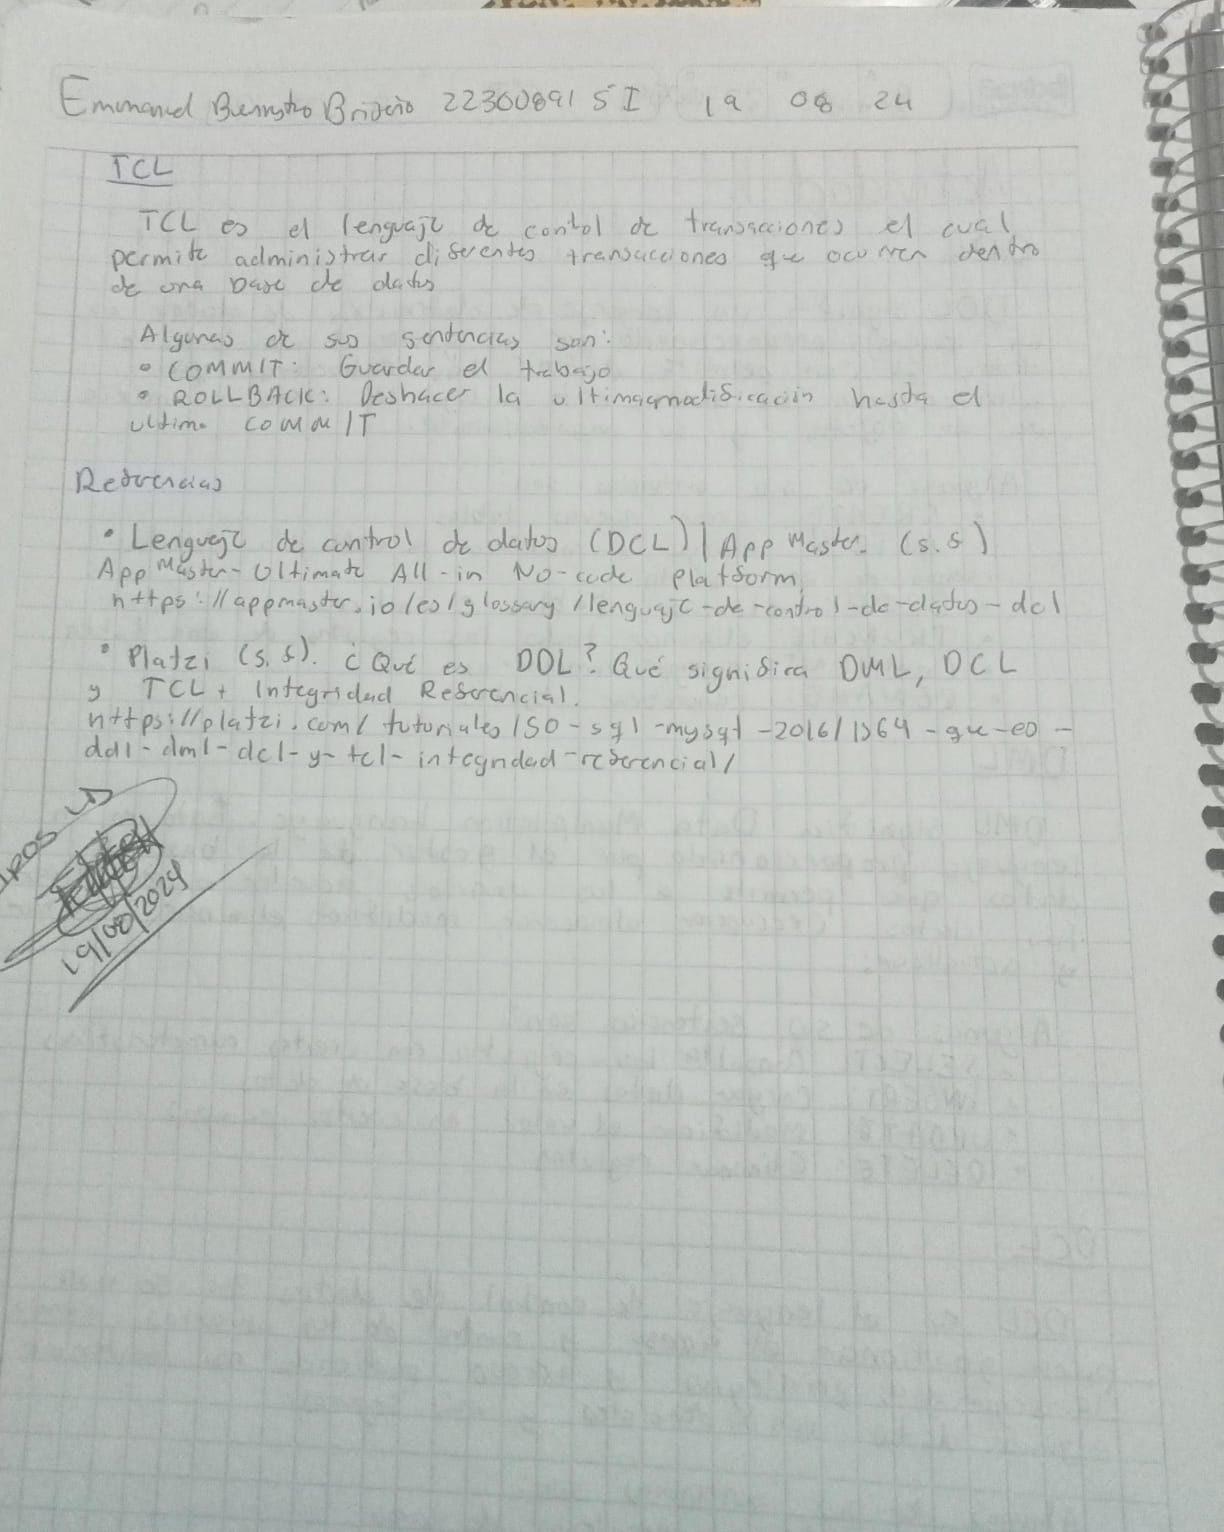 Emmanuel Buenrostro Briseño 22300891 5 I 19 08 24
TCL
TCL es el lenguaje de contol de transacciones el cual
permite administrar diferentes transacciones que ocurren dentro
de una base de datos
Algunas de sus sentencias son:
• COMMIT: Guardar el trabajo
• ROLLBACK: Deshacer la ultima modificación hasta el
ultimo COMMIT
Referencias
• Lenguaje de control de datos (DCL) | AppMaster. (s.f)
AppMaster- Ultimate All-in No-code Platform
https://appmaster.io/es/glossary/lenguaje-de-control-de-datos-dcl
• Platzi (s.f). ¿Qué es DDL? Qué significa DML, DCL
y TCL + Integridad Referencial.
https://platzi.com/tutoriales/150-sql-mysql-2016/1564-que-es-
ddl-dml-dcl-y-tcl-integridad-referencial/
19/08/2024